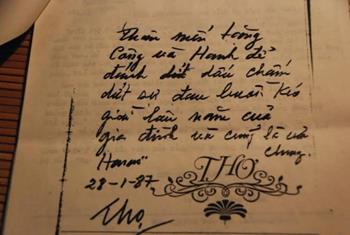 Thân mến tặng
Công và Hạnh để
đánh dứt dấu chấm
dứt sự đau buồn kéo
dài lâu năm của
gia đình và cũng là của
chung.
28-1-87
THƠ
Thọ